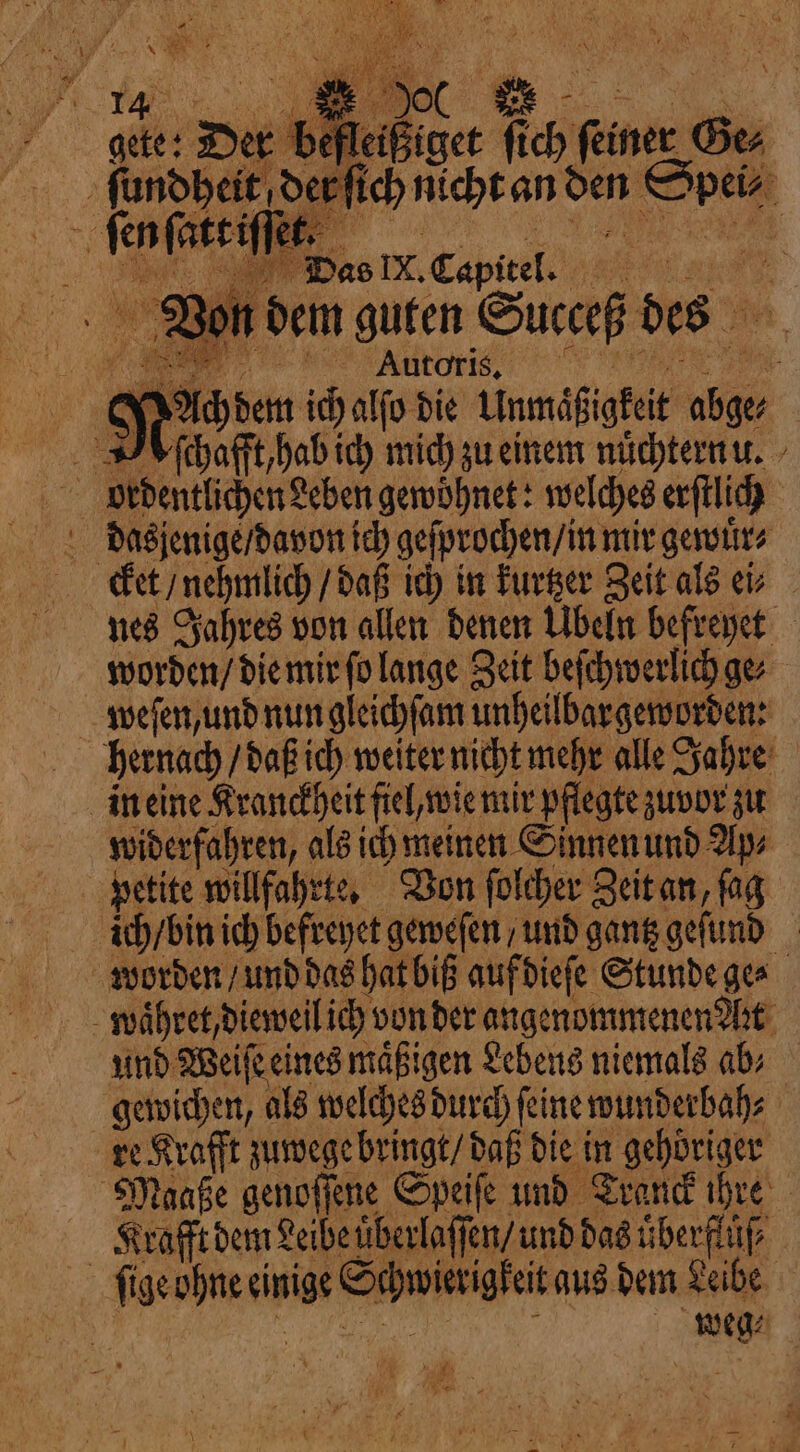 14 ❀ )o( ❀
gete: Der befleißiget ſich ſeiner Ge⸗
ſundheit, der ſich nicht an den Spei⸗
ſen ſatt iſſet.
Das IX. Capitel.
Von dem guten Succeß des
Autoris.
NAchdem ich alſo die Unmaͤßigkeit abge⸗
ſchafft, hab ich mich zu einem nuͤchtern u.
ordentlichen Leben gewoͤhnet: welches erſtlich
dasjenige/davon ich geſprochen/in mir gewuͤr⸗
cket / nehmlich / daß ich in kurtzer Zeit als ei⸗
nes Jahres von allen denen Ubeln befreyet
worden/ die mir ſo lange Zeit beſchwerlich ge⸗
weſen, und nun gleichſam unheilbar geworden:
hernach / daß ich weiter nicht mehr alle Jahre
in eine Kranckheit fiel, wie mir pflegte zuvor zu
widerfahren, als ich meinen Sinnen und Ap⸗
petite willfahrte. Von ſolcher Zeit an, ſag
ich/bin ich befreyet geweſen, und gantz geſund
worden / und das hat biß auf dieſe Stunde ge⸗
waͤhret, dieweil ich von der angenommenen Art
und Weiſe eines maͤßigen Lebens niemals ab⸗
gewichen, als welches durch ſeine wunderbah⸗
re Krafft zuwege bringt/ daß die in gehoͤriger
Maaße genoſſene Speiſe und Tranck ihre
Krafft dem Leibe uͤberlaſſen/ und das uͤberfluͤſ⸗
ſige ohne einige Schwierigkeit aus dem Leibe
weg⸗